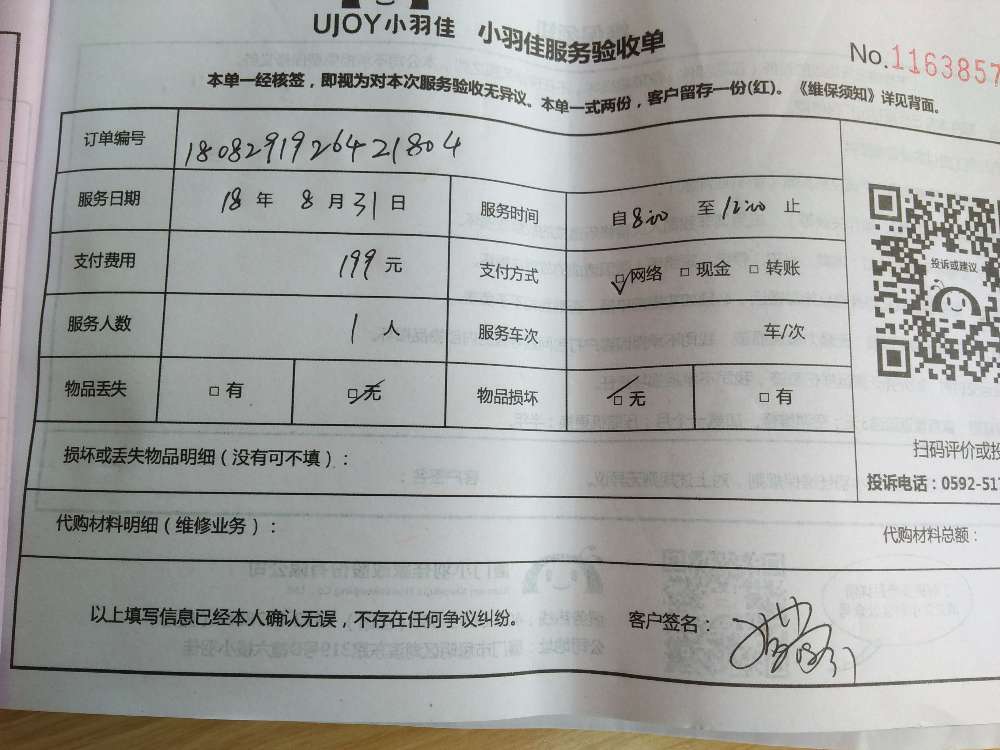 UJOY小羽佳 小羽佳服务验收单
No.1163857
本单一经核签，即视为对本次服务验收无异议。本单一式两份，客户留存一份(红)。《维保须知》详见背面。
订单编号 1808291926421804
服务日期 18 年 8 月 31 日 服务时间 自 8:00 至 12:00 止
支付费用 199 元 支付方式 ☑网络 □现金 □转账
投诉或建议
服务人数 1 人 服务车次 车/次
物品丢失 □有 ☑无 物品损坏 ☑无 □有
扫码评价或投
损坏或丢失物品明细（没有可不填）：
投诉电话：0592-517
代购材料明细（维修业务）： 代购材料总额：
以上填写信息已经本人确认无误，不存在任何争议纠纷。 客户签名：